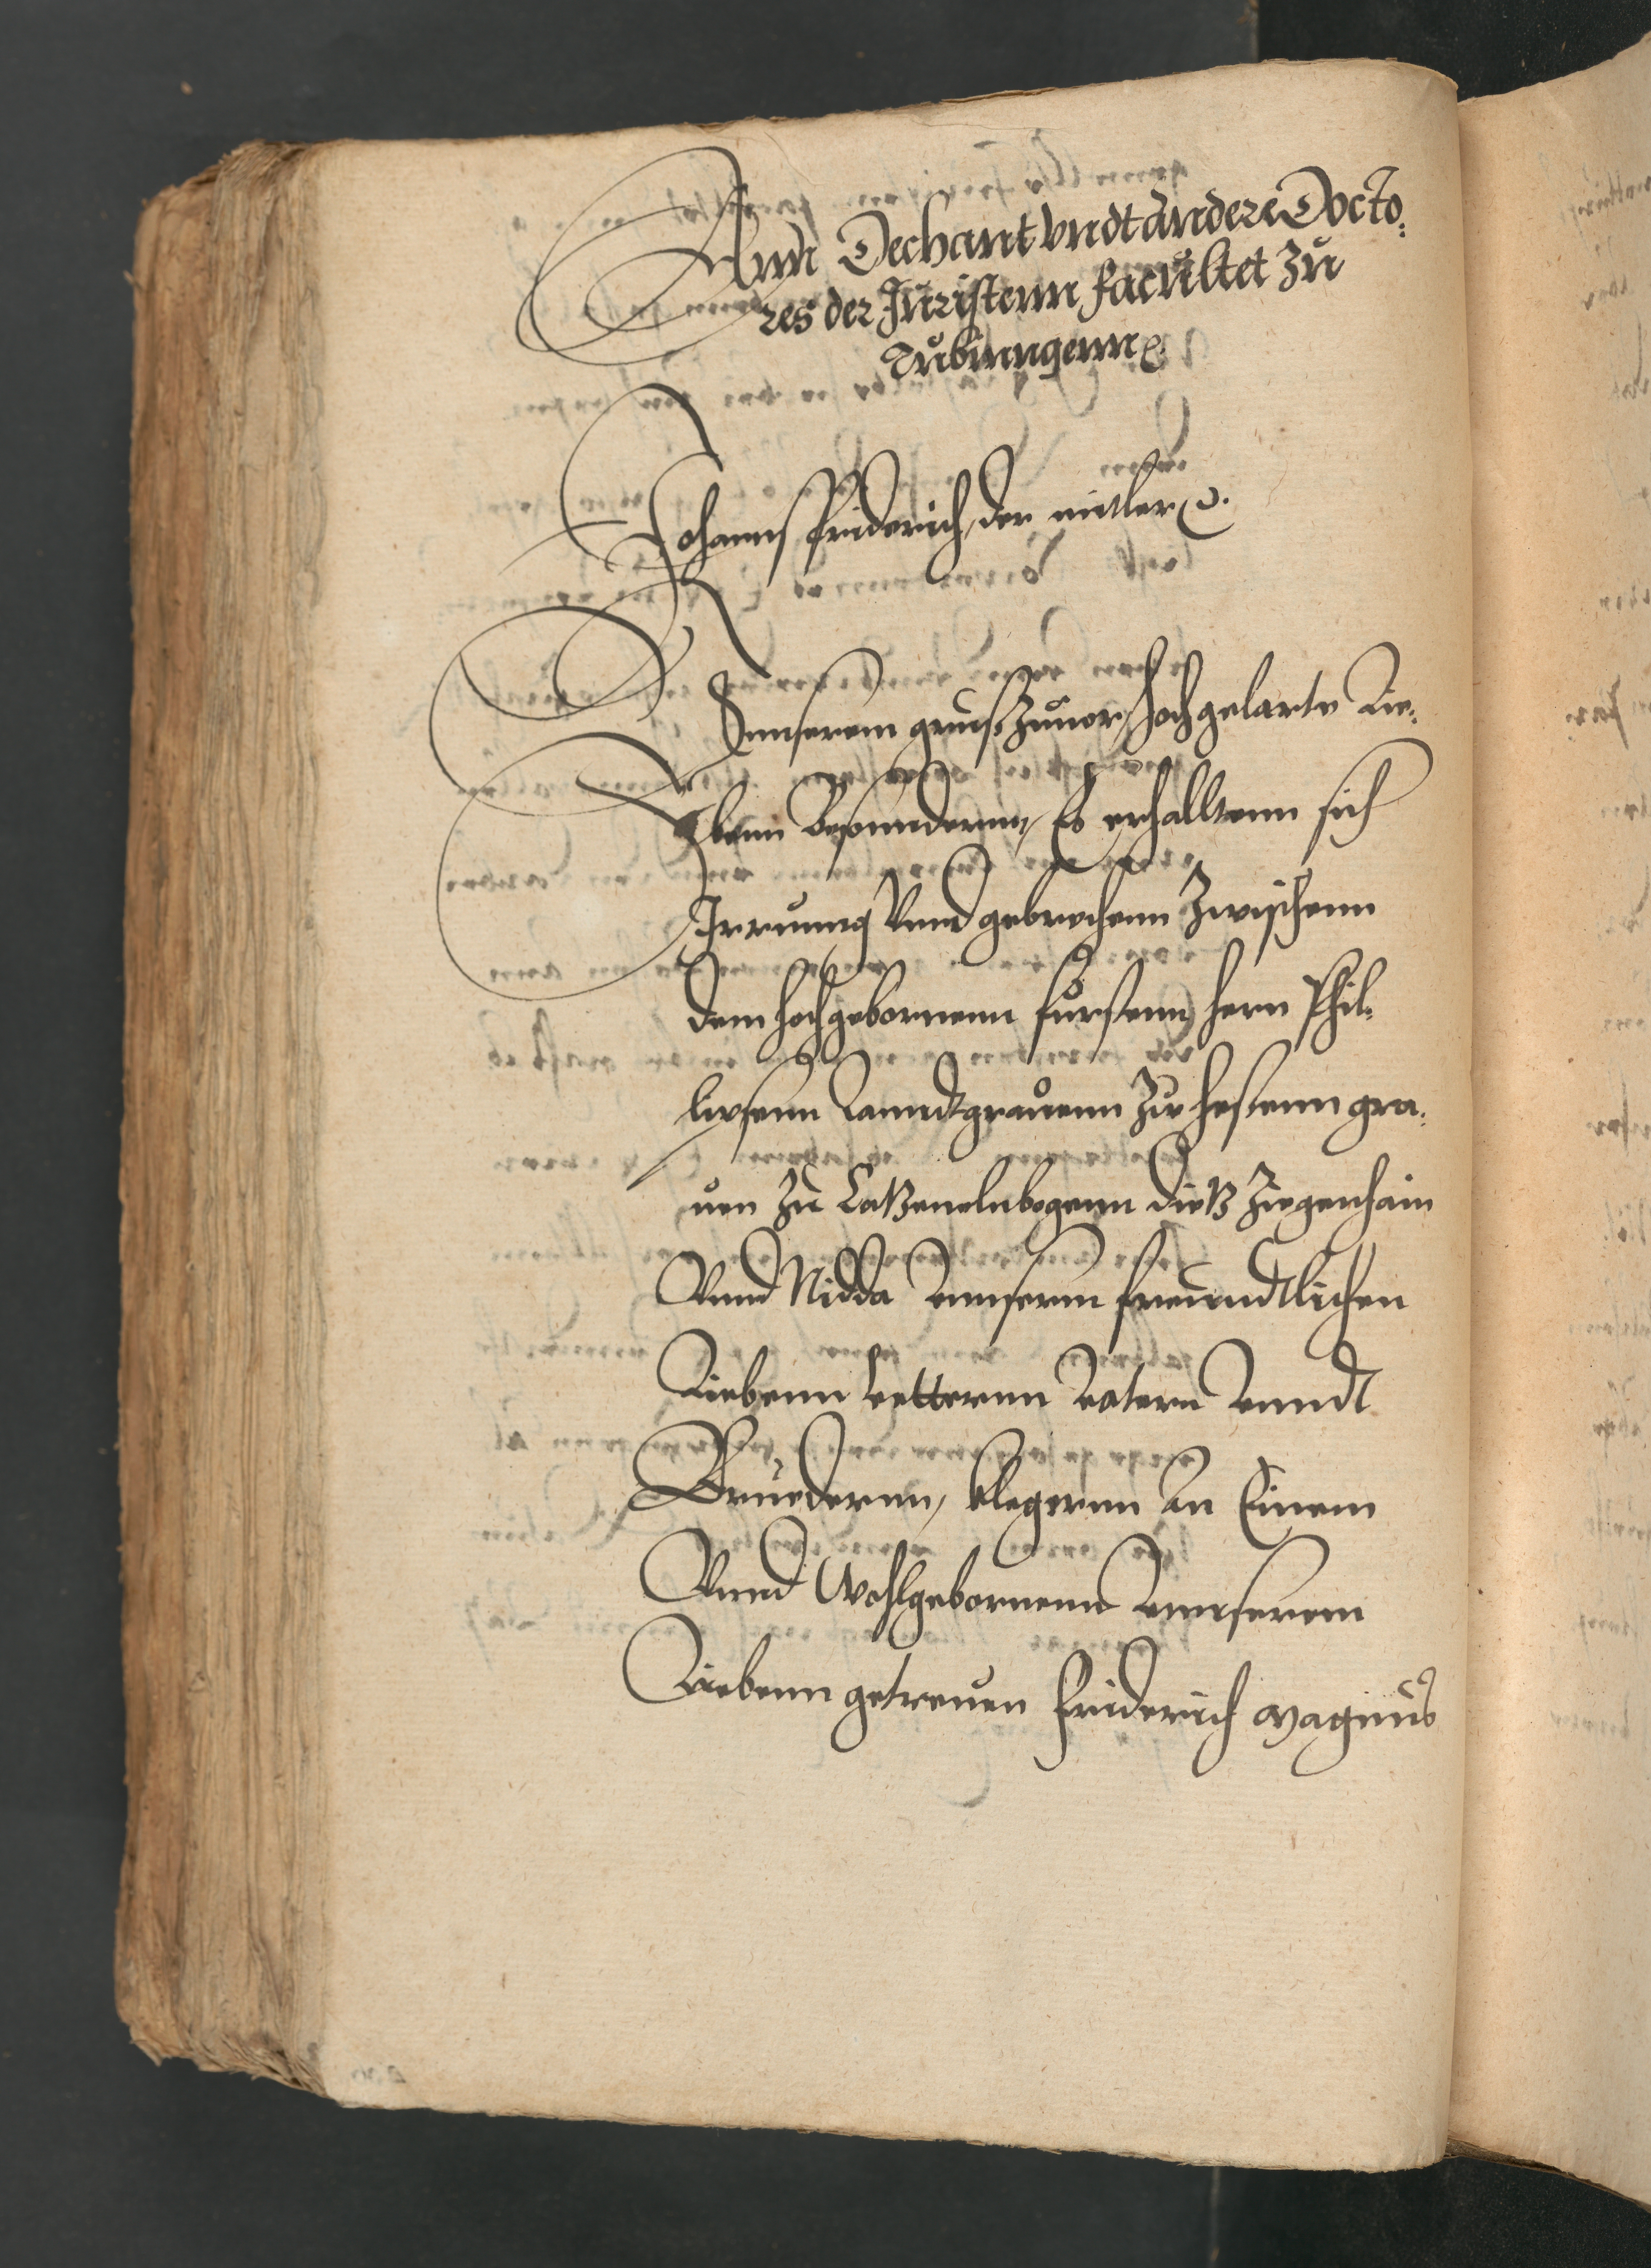 Ann Dechant vndt andere Docto:
res der Juristenn facultet zu
Tubinngenn ꝛc.
Johanns Friderich der mitler ꝛc.
Vnnserem grus zuuor, hochgelarte Lie:
benn Besonndernn, Es erhalltenn sich
Irrunng Vnnd gebrechenn Zwischenn
dem hochgebornenn fursten, hern Phil:
lipsenn Lanndtgrauenn Zu hessenn gra:
uen Zu Catzenelnbogenn Dietz Ziegenhain
Vnnd Nidda vnnserm freundtlichen
Liebenn vetternn vatern vnndt
Bruedernn, klegernn an Einem
Vnnd Wohlgebornenn vnnserem
Liebenn getreuen Friderich Magnus